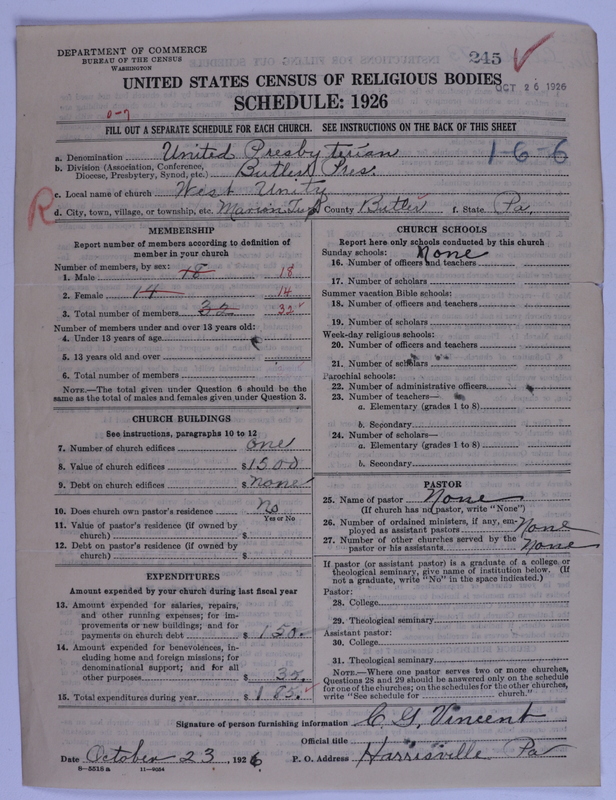 DEPARTMENT OF COMMERCE
BUREAU OF THE CENSUS
WASHINGTON
245
UNITED STATES CENSUS OF RELIGIOUS BODIES
OCT 26 1926
SCHEDULE: 1926
0-7
FILL OUT A SEPARATE SCHEDULE FOR EACH CHURCH. SEE INSTRUCTIONS ON THE BACK OF THIS SHEET
a. Denomination United Presbyterian
1-6-6
b. Division (Association, Conference, Diocese, Presbytery, Synod, etc.) Butler Pres.
c. Local name of church West Unity
R
d. City, town, village, or township, etc. Marion Twp County Butler f. State Pa.
MEMBERSHIP
Report number of members according to definition of
member in your church
Number of members, by sex:
1. Male 18 18
2. Female 14 14
3. Total number of members 32 32
Number of members under and over 13 years old:
4. Under 13 years of age
5. 13 years old and over
6. Total number of members
NOTE.—The total given under Question 6 should be the
same as the total of males and females given under Question 3.
CHURCH BUILDINGS
See instructions, paragraphs 10 to 12
7. Number of church edifices one
8. Value of church edifices $1500
9. Debt on church edifices $ none
10. Does church own pastor's residence No
Yes or No
11. Value of pastor's residence (if owned by
church) $
12. Debt on pastor's residence (if owned by
church) $
EXPENDITURES
Amount expended by your church during last fiscal year
13. Amount expended for salaries, repairs,
and other running expenses; for im-
provements or new buildings; and for
payments on church debt $ 150.
14. Amount expended for benevolences, in-
cluding home and foreign missions; for
denominational support; and for all
other purposes $ 35.
15. Total expenditures during year $ 185.
CHURCH SCHOOLS
Report here only schools conducted by this church
Sunday schools: None
16. Number of officers and teachers
17. Number of scholars
Summer vacation Bible schools:
18. Number of officers and teachers
19. Number of scholars
Week-day religious schools:
20. Number of officers and teachers
21. Number of scholars
Parochial schools:
22. Number of administrative officers
23. Number of teachers—
a. Elementary (grades 1 to 8)
b. Secondary
24. Number of scholars—
a. Elementary (grades 1 to 8)
b. Secondary
PASTOR
25. Name of pastor None
(If church has no pastor, write "None")
26. Number of ordained ministers, if any, em-
ployed as assistant pastors None
27. Number of other churches served by the
pastor or his assistants None
If pastor (or assistant pastor) is a graduate of a college or
theological seminary, give name of institution below. (If
not a graduate, write "No" in the space indicated.)
Pastor:
28. College
29. Theological seminary
Assistant pastor:
30. College
31. Theological seminary
NOTE.—Where one pastor serves two or more churches,
Questions 28 and 29 should be answered only on the schedule
for one of the churches; on the schedules for the other churches,
write "See schedule for church."
Signature of person furnishing information C. G. Vincent
Official title
Date October 23, 1926 P. O. Address Harrisville Pa
8—5515 a 11—9054